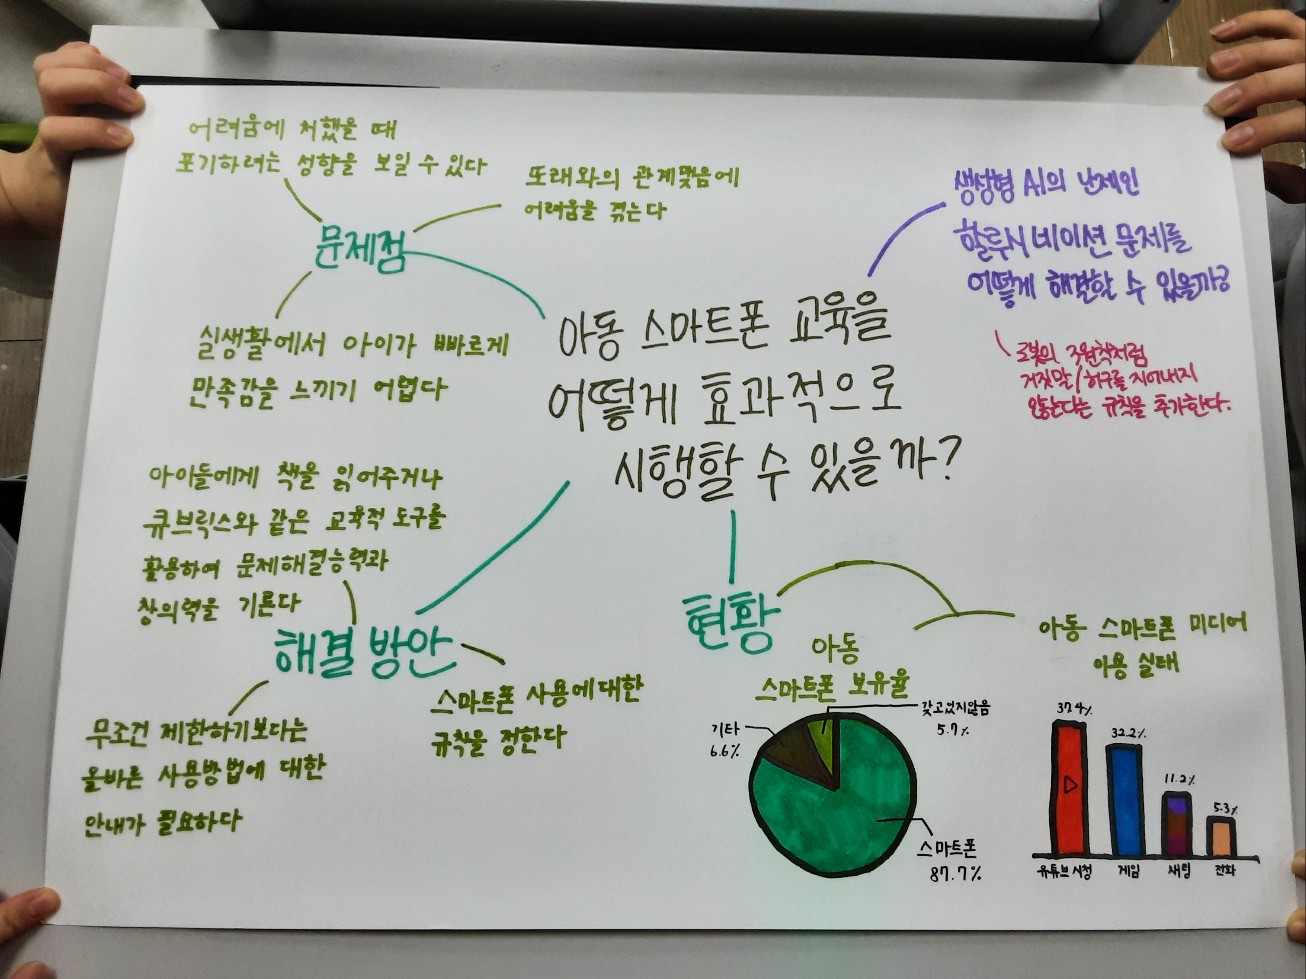 어려움에 처했을 때
포기하려는 성향을 보일 수 있다
또래와의 관계맺음에
어려움을 겪는다
문제점
실생활에서 아이가 빠르게
만족감을 느끼기 어렵다
생성형 AI의 난제인
할루시네이션 문제를
어떻게 해결할 수 있을까?
로봇의 3원칙처럼
거짓말/허구를 지어내지
않는다는 규칙을 추가한다.
아동 스마트폰 교육을
어떻게 효과적으로
시행할 수 있을까?
아이들에게 책을 읽어주거나
큐브릭스와 같은 교육적 도구를
활용하여 문제해결능력과
창의력을 기른다
해결 방안
스마트폰 사용에 대한
규칙을 정한다
무조건 제한하기보다는
올바른 사용방법에 대한
안내가 필요하다
현황
아동
스마트폰 보유율
갖고있지않음
5.7%
기타
6.6%
스마트폰
87.7%
아동 스마트폰 미디어
이용 실태
37.4%
32.2%
11.2%
5.3%
유튜브 시청
게임
채팅
전화